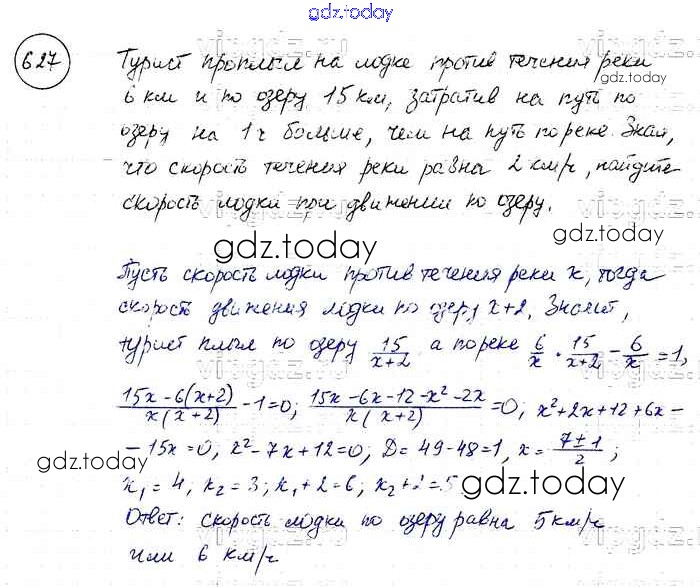 gdz.today
627
Турист проплыл на лодке против течения реки
gdz.today
6 км и по озеру 15 км, затратив на путь по
озеру на 1ч больше, чем на путь по реке. Зная,
что скорость течения реки равна 2 км/ч, найдите
скорость лодки при движении по озеру.
gdz.today
gdz.today
Пусть скорость лодки против течения реки x, тогда
скорость движения лодки по озеру x+2. Значит,
турист плыл по озеру 15/(x+2) а по реке 6/x . 15/(x+2) - 6/x = 1,
(15x-6(x+2))/(x(x+2)) - 1=0; (15x-6x-12-x²-2x)/(x(x+2)) =0, x²+2x+12+6x-
-15x=0, x²-7x+12=0, D=49-48=1, x= (7±1)/2 ;
gdz.today
x₁=4, x₂=3; x₁+2=6; x₂+2=5
gdz.today
Ответ: скорость лодки по озеру равна 5 км/ч
или 6 км/ч